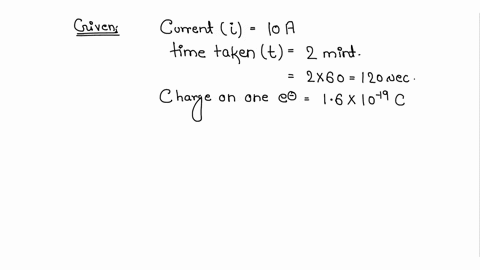 Given: Current (i) = 10 A
time taken (t) = 2 mint.
= 2×60 = 120 sec.
Charge on one e⊖ = 1.6 × 10⁻¹⁹ C